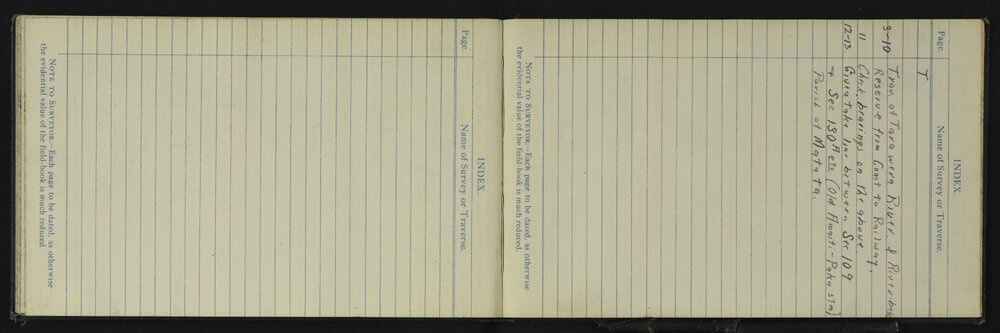 INDEX
Page.
Name of Survey or Traverse.
T
3-10 Trav. of Tarawera River & River bank
Reserve from Coast to Railway.
11 Check bearings on the above
12-13 Give & take line between Sec 109
+ Sec 130A etc (Old Awaiti-Paku stm)
Parish of Matata.
NOTE TO SURVEYOR.—Each page to be dated, as otherwise
the evidential value of the field-book is much reduced.
INDEX.
Page.
Name of Survey or Traverse.
NOTE TO SURVEYOR.—Each page to be dated, as otherwise
the evidential value of the field-book is much reduced.